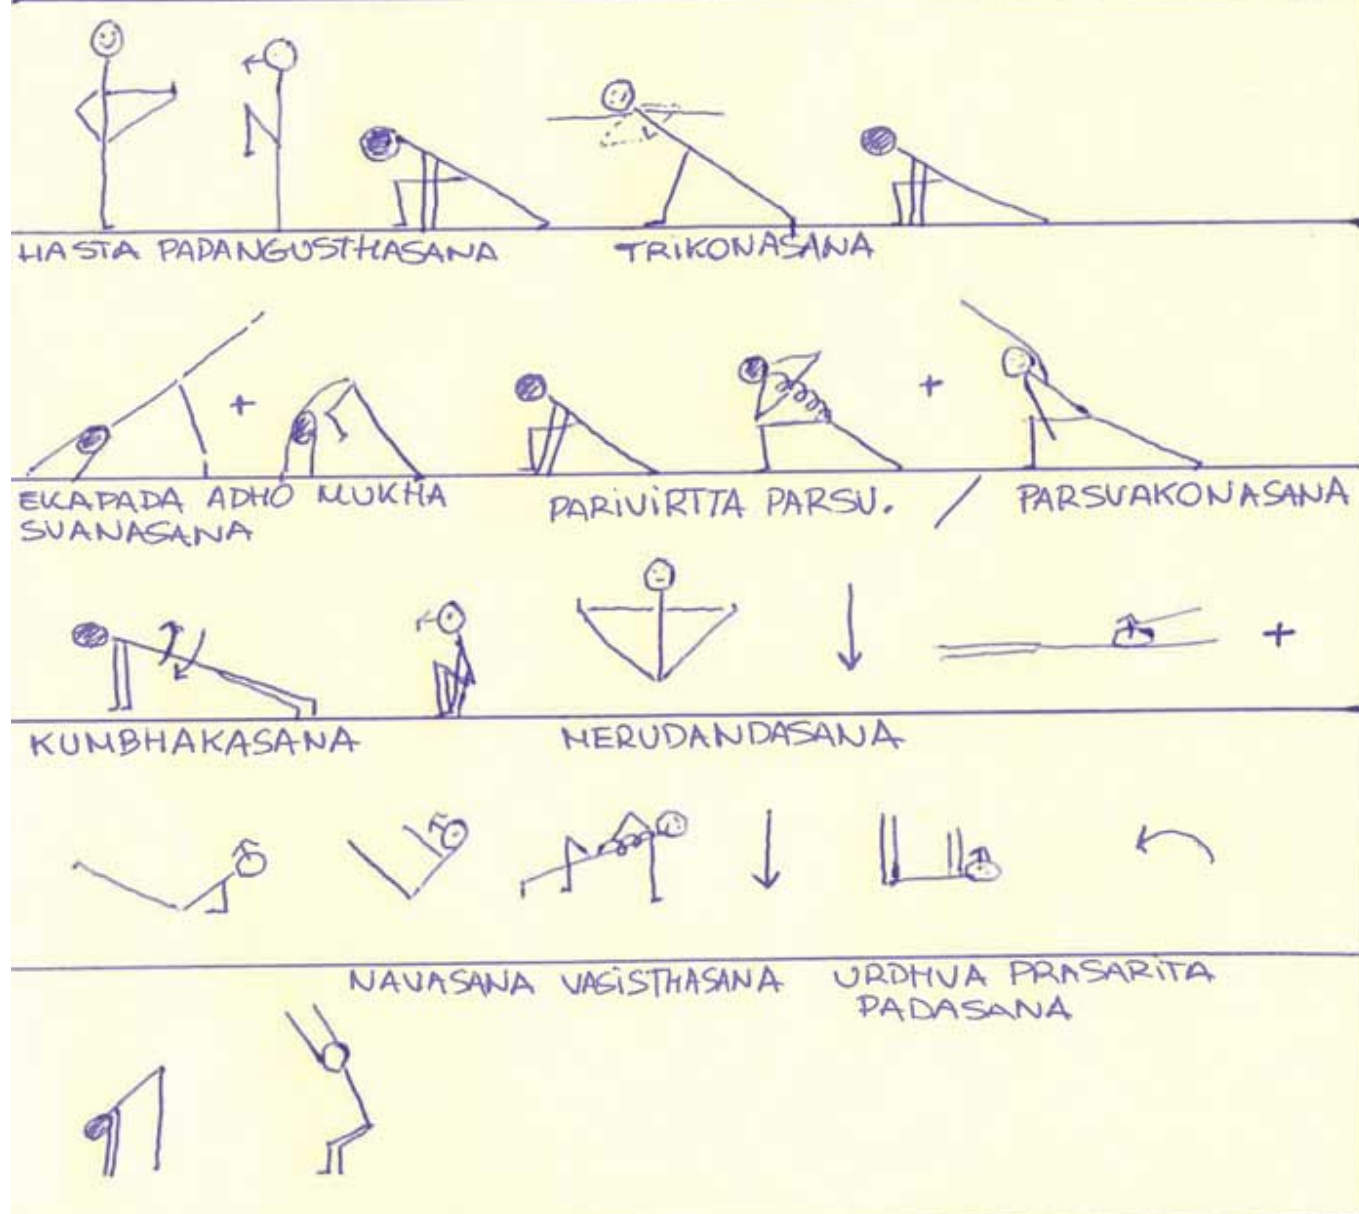 HASTA PADANGUSTHASANA TRIKONASANA
EKAPADA ADHO MUKHA PARIVIRTTA PARSU. / PARSVAKONASANA
SVANASANA
KUMBHAKASANA MERUDANDASANA
NAVASANA VASISTHASANA URDHVA PRASARITA
PADASANA